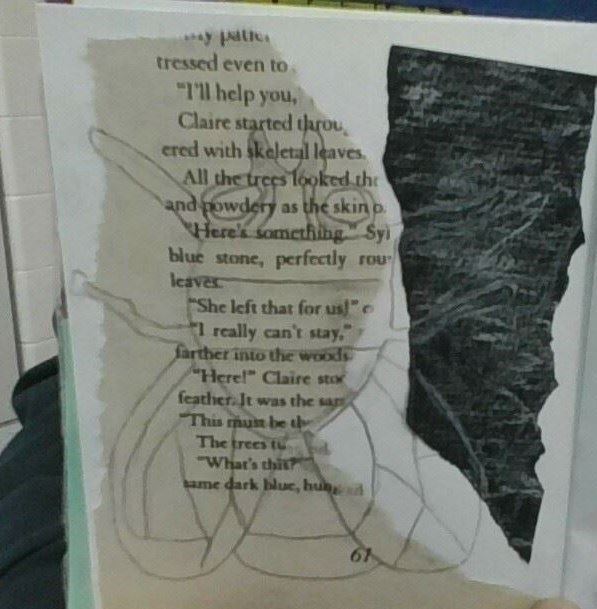 my patie
tressed even to
"I'll help you,
Claire started throu
ered with skeletal leaves.
All the trees looked the
and powdery as the skin o
"Here's something." Syl
blue stone, perfectly rou
leaves.
"She left that for us!"
"I really can't stay,"
farther into the woods
"Here!" Claire sto
feather. It was the sam
"This must be th
The trees
"What's this?"
same dark blue, hun
61